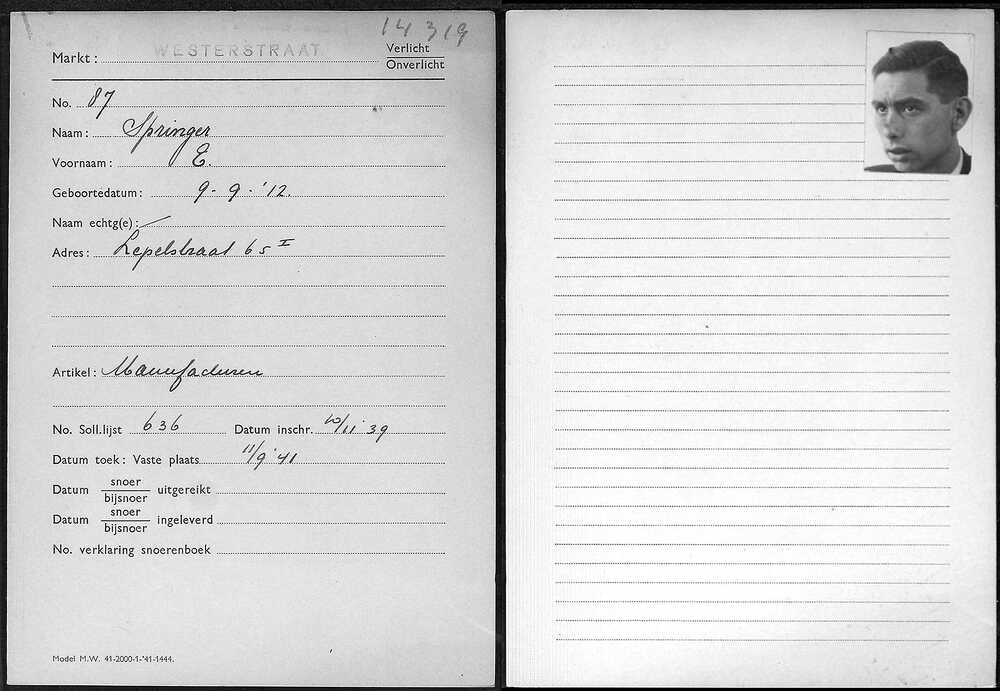 14319
Markt: WESTERSTRAAT Verlicht
Onverlicht
No. 87
Naam: Springer
Voornaam: E.
Geboortedatum: 9-9-'12.
Naam echtg(e): —
Adres: Lepelstraat 65 I
Artikel: Manufacturen
No. Soll.lijst 636 Datum inschr. 20/11'39
Datum toek: Vaste plaats 11/9'41
Datum snoer
bijsnoer uitgereikt
Datum snoer
bijsnoer ingeleverd
No. verklaring snoerenboek
Model M.W. 41-2000-1-'41-1444.